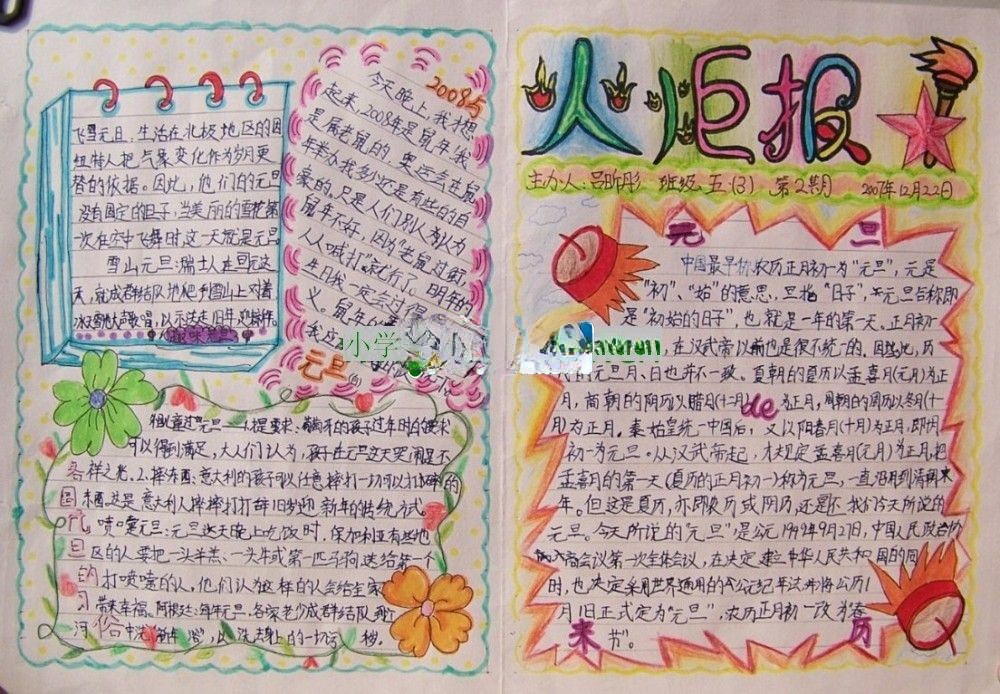 飞雪元旦：生活在北极地区的因
纽特人把气象变化作为岁月更
替的依据。因此，他们的元旦
没有固定的日子，当美丽的雪花第
一次在空中飞舞时，这一天就是元旦
雪山元旦：瑞士人在元旦这
天，就成群结队地爬到雪山上对着
冰天雪地大声歌唱，以示送走旧年，
2008与
元旦
今天晚上，我才想
起来，2008年是鼠年！我
是属老鼠的，奥运会在鼠
年举办我多少还是有些的自
豪的，只是人们别认为认为
鼠年不好，因为“老鼠过街，
人人喊打”就行了。明年的
生日我一定会过得
义。鼠年的
我应
各国元旦的习俗
可以得到满足，大人们认为，孩子在元旦这天哭闹是不
祥之兆。2.摔东西：意大利的孩子可以任意摔打一切可以打碎的
东西，这是意大利人摔摔打打辞旧岁迎新年的传统方式。
喷嚏元旦：元旦这天晚上吃饭时，保加利亚有些地
区的人要把一头羊羔、一头牛或第一匹马驹送给第一个
打喷嚏的人，他们认为这样的人会给全家
带来幸福。阿根廷：每年元旦，各家老少成群结队到江
河中洗“新年浴”，以洗去身上的一切污秽。
火炬报
主办人：吕昕彤 班级 五(3) 第2期 2007年12月22日
元旦
中国最早称农历正月初一为“元旦”，元是
“初”、“始”的意思，旦指“日子”，元旦合称即
是“初始的日子”，也就是一年的第一天。正月初一
，在汉武帝以前也是很不统一的。因此，历
代的元旦月、日也并不一致。夏朝的夏历以孟喜月(元月)为正
月，商朝的阴历以腊月(十二月)为正月，周朝的周历以冬月(十一
月)为正月。秦始皇统一中国后，又以阳春月(十月)为正月，即因
初一为元旦。从汉武帝起，才规定孟喜月(元月)为正月，把
孟喜月的第一天（夏历的正月初一）称为元旦，一直沿用到清朝末
年。但这是夏历，亦即农历或阴历，还是不我们今天所说的
元旦。今天所说的“元旦”是公元1949年9月27日，中国人民政治协
商会议第一次全体会议，在决定建立中华人民共和国的同
时，也决定采用世界通用的公元纪年法，并将公历1
月1日正式定为“元旦”，农历正月初一改为“春
节”。
de
来历
小学